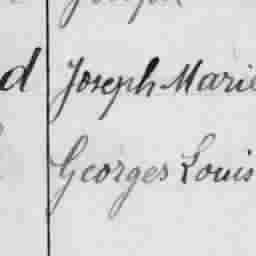 d Joseph Marie
Georges Louis